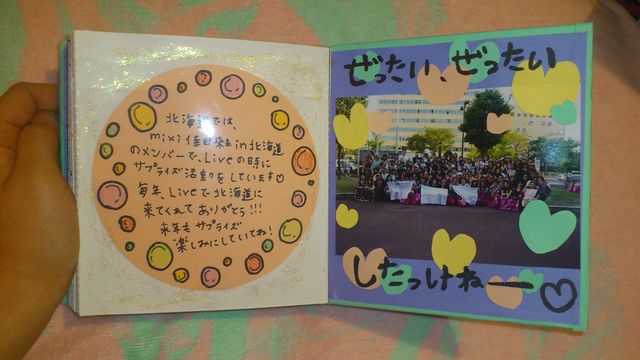 北海道では、
mixi倖田來未in北海道
のメンバーで、Liveの時に
サプライズ活動をしています♡
毎年、Liveで北海道に
来てくれてありがとう!!!
来年もサプライズ
楽しみにしていてね!
ぜったい、ぜったい
したっけねー♡